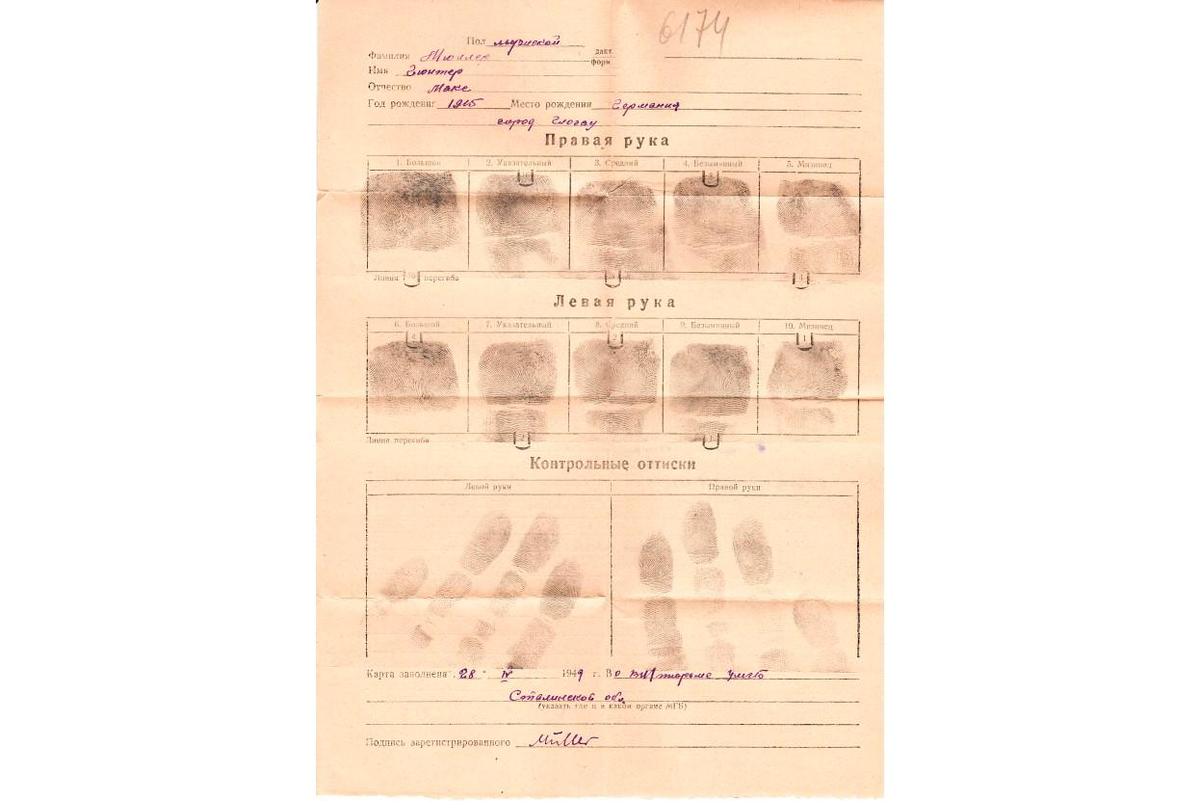 6174
Пол мужской
Фамилия Мюллер дакт. форм.
Имя Гюнтер
Отчество Макс
Год рождения 1925 Место рождения Германия
город Глогау
Правая рука
1. Большой 2. Указательный 3. Средний 4. Безымянный 5. Мизинец
Линия перегиба
Левая рука
6. Большой 7. Указательный 8. Средний 9. Безымянный 10. Мизинец
Линия перегиба
Контрольные оттиски
Левой руки Правой руки
Карта заполнена 28 IV 1949 г. В тюрьме УМГБ
Сталинской обл.
(указать где и в каком органе МГБ)
Подпись зарегистрированного Müller